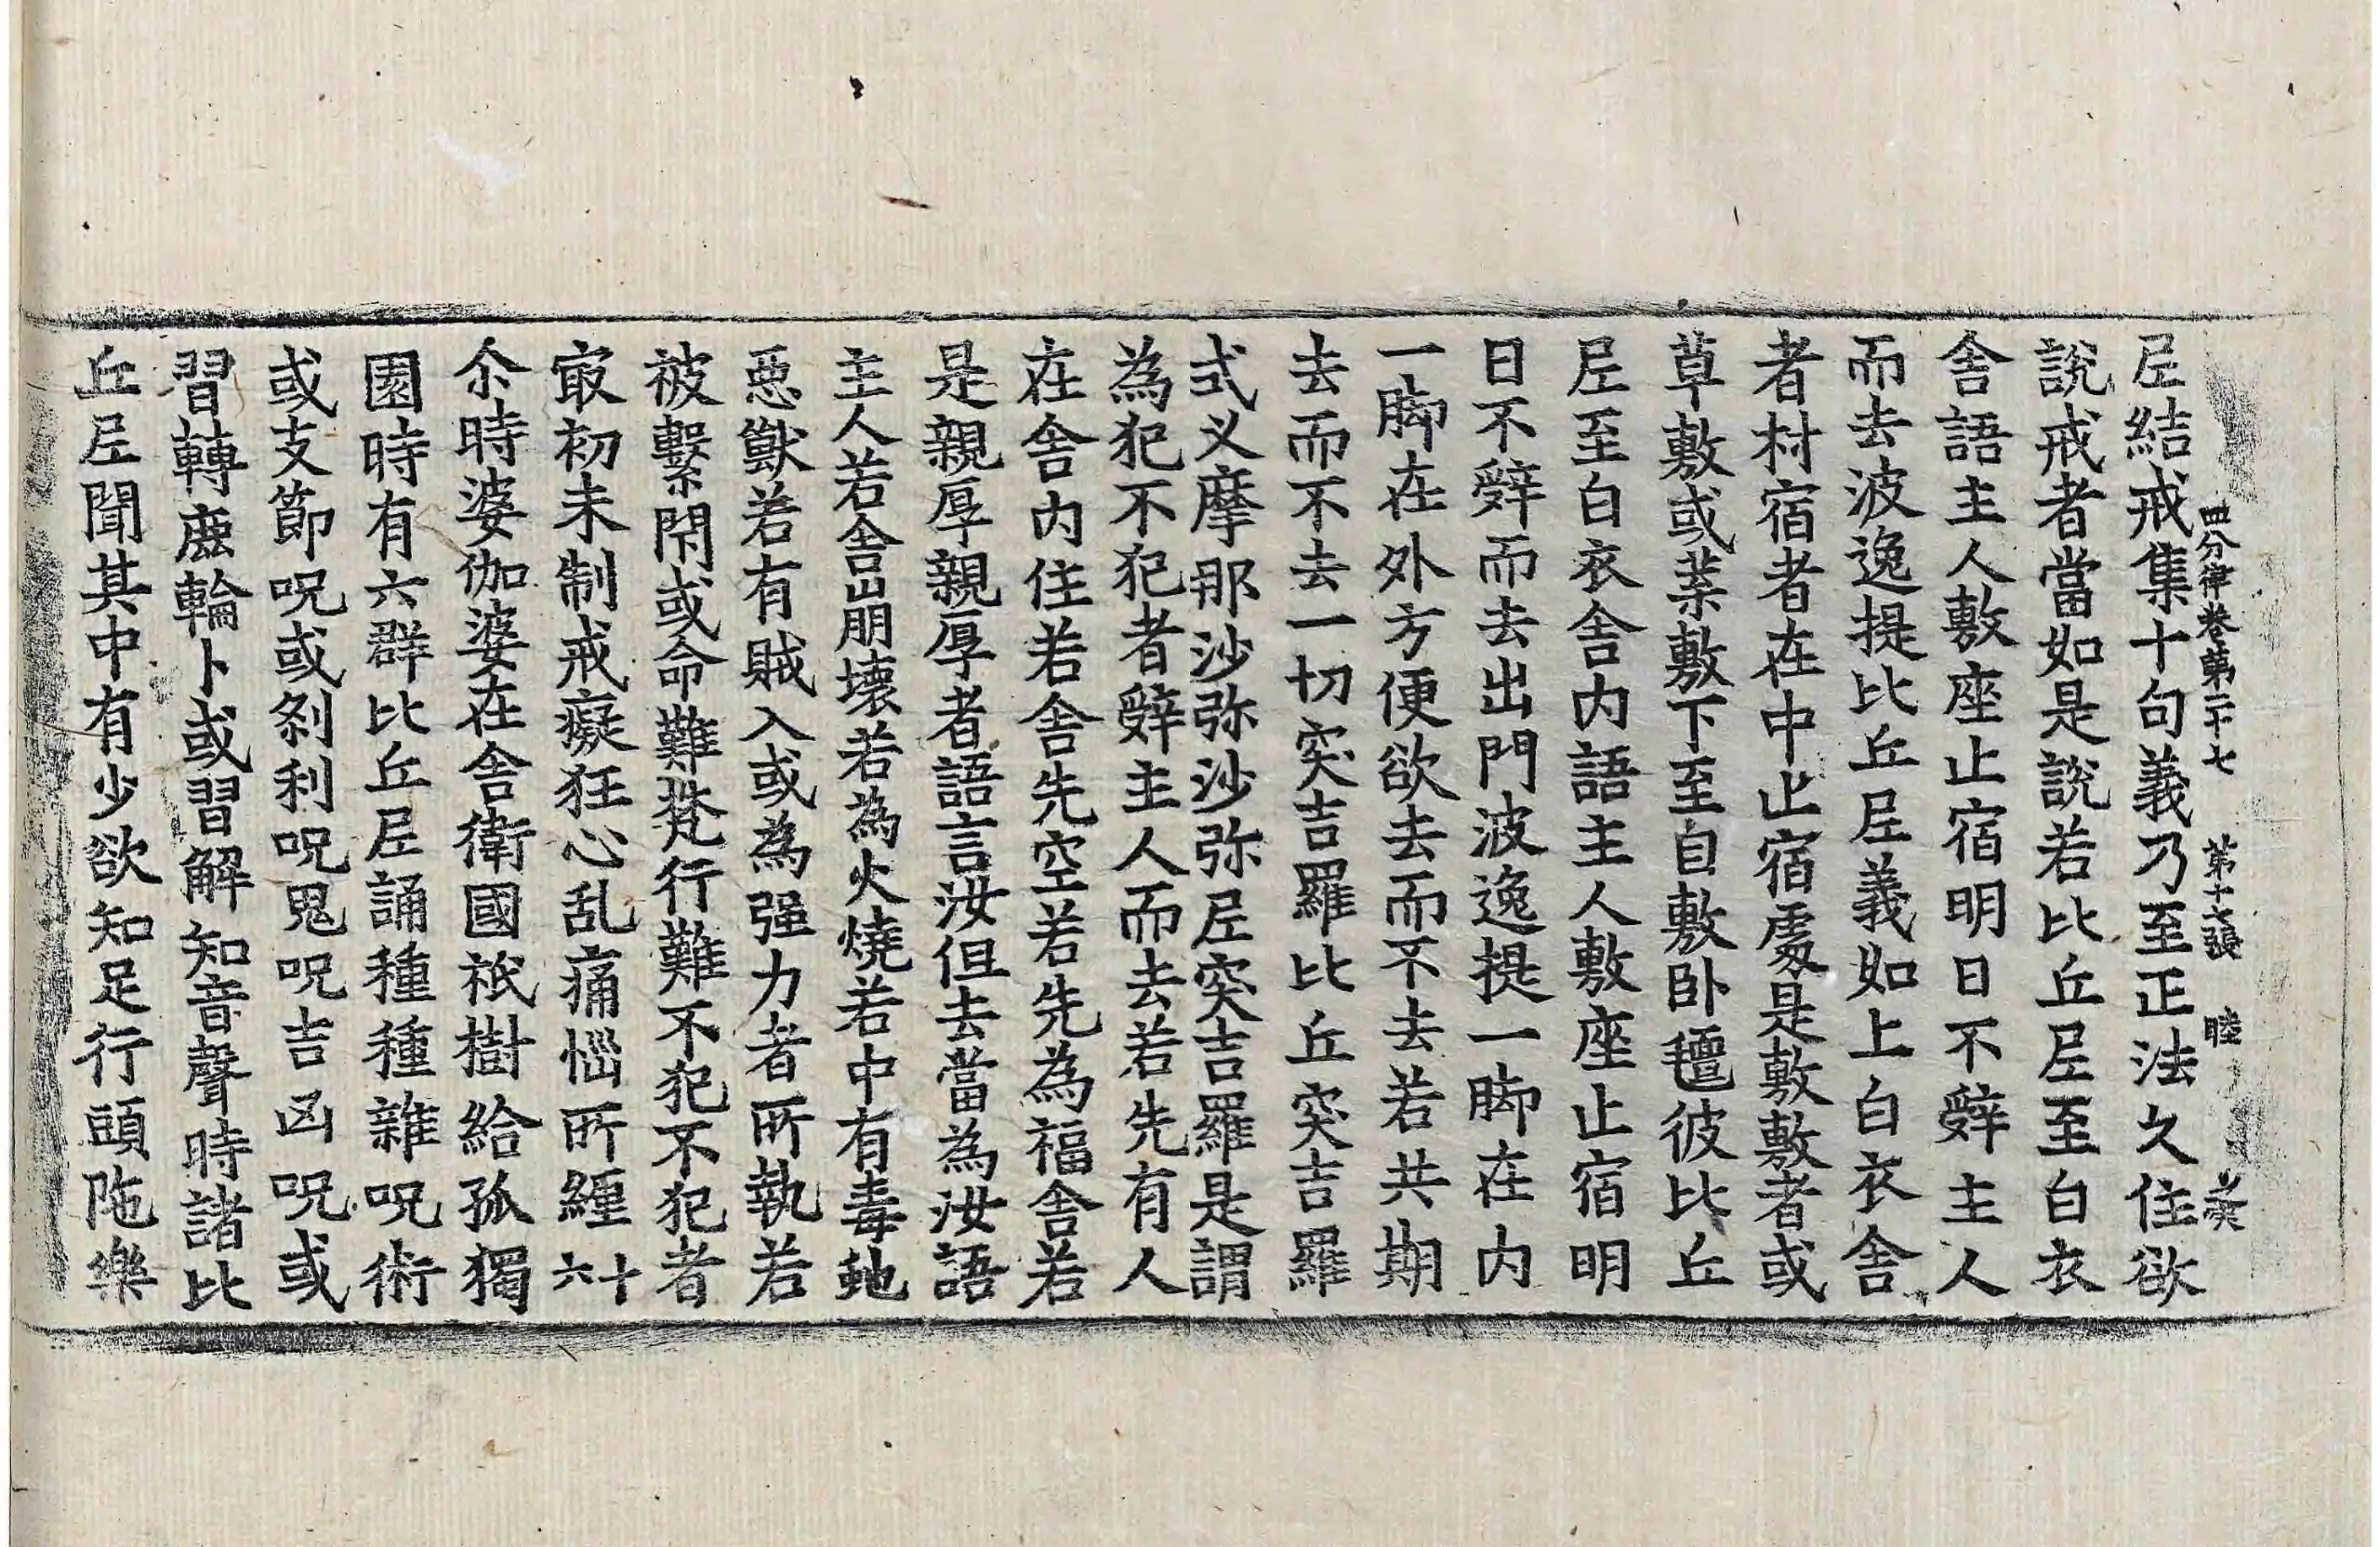 四分律卷第二十七 第十七張 睦
尼結戒集十句義乃至正法久住欲
說戒者當如是說若比丘尼至白衣
舍語主人敷座止宿明日不辤主人
而去波逸提比丘尼義如上白衣舍
者村宿者在中止宿處是敷敷者或
草敷或葉敷下至自敷卧氈彼比丘
尼至白衣舍内語主人敷座止宿明
日不辤而去出門波逸提一脚在内
一脚在外方便欲去而不去若共期
去而不去一切突吉羅比丘突吉羅
式叉摩那沙弥沙弥尼突吉羅是謂
為犯不犯者辤主人而去若先有人
在舍内住若舍先空若先為福舍若
是親厚親厚者語言汝但去當為汝語
主人若舍崩壞若為火燒若中有毒虵
惡獸若有賊入或為强力者所執若
被繫閇或命難梵行難不犯不犯者
㝡初未制戒癡狂心乱痛惱所纏六十
尒時婆伽婆在舍衛國祇樹給孤獨
園時有六群比丘尼誦種種雜呪術
或支節呪或剎利呪鬼呪吉凶呪或
習轉鹿輪卜或習解知音聲時諸比
丘尼聞其中有少欲知足行頭陁樂